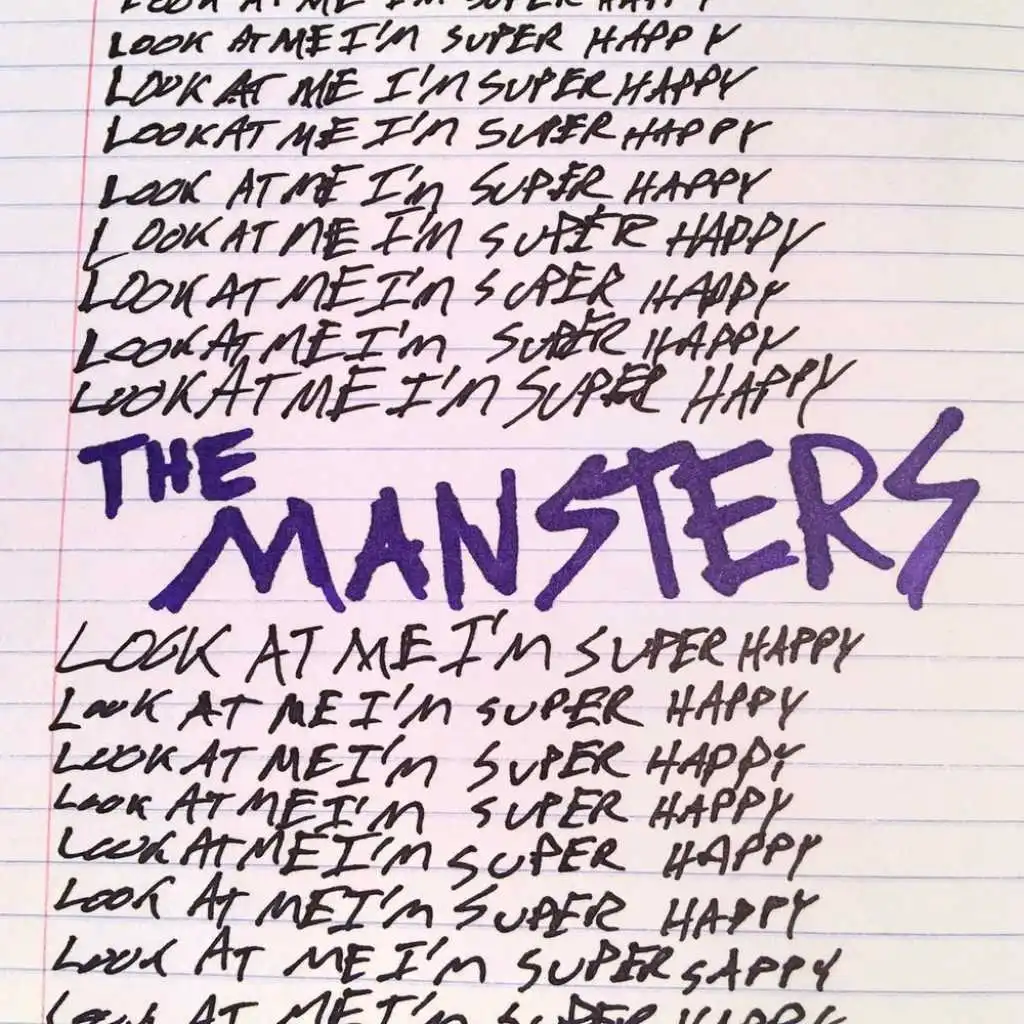 LOOK AT ME I'M SUPER HAPPY
LOOK AT ME I'M SUPER HAPPY
LOOK AT ME I'M SUPER HAPPY
LOOK AT ME I'M SUPER HAPPY
LOOK AT ME I'M SUPER HAPPY
LOOK AT ME I'M SUPER HAPPY
LOOK AT ME I'M SUPER HAPPY
LOOK AT ME I'M SUPER HAPPY
LOOK AT ME I'M SUPER HAPPY
THE
MANSTERS
LOOK AT ME I'M SUPER HAPPY
LOOK AT ME I'M SUPER HAPPY
LOOK AT ME I'M SUPER HAPPY
LOOK AT ME I'M SUPER HAPPY
LOOK AT ME I'M SUPER HAPPY
LOOK AT ME I'M SUPER HAPPY
LOOK AT ME I'M SUPER SAPPY
LOOK AT ME I'M SUPER HAPPY